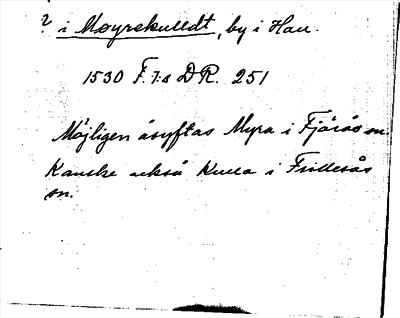 ? i Moyrekulldt, by i Hall.
1530 F. I:s D R. 251
Möjligen åsyftas Myra i Fjärås sn.
Kanske också Kulla i Frillesås
sn.